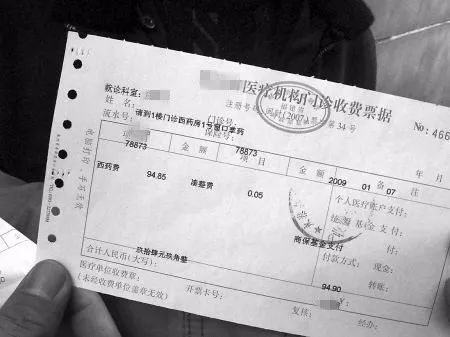 医疗机构门诊收费票据
就诊科室:
姓名:
注册号 财(2007) 第34号
No:466
请到1楼门诊西药房1号窗口拿药
流水号: 门诊号:
78873 保险号: 78873
年 月
项目 金额 项目 金额 2009 01 07 备注
西药费 94.85 凑整费 0.05
个人医疗账户支付:
统筹基金支付:
商保基金支付
付款方式: 现金:
转账:
合计人民币(大写): 玖拾肆元玖角整
94.90
¥:
医疗单位收费章:
(未经收费单位盖章无效)
开票卡号: 复核: 经办:
电脑打印,手写无效